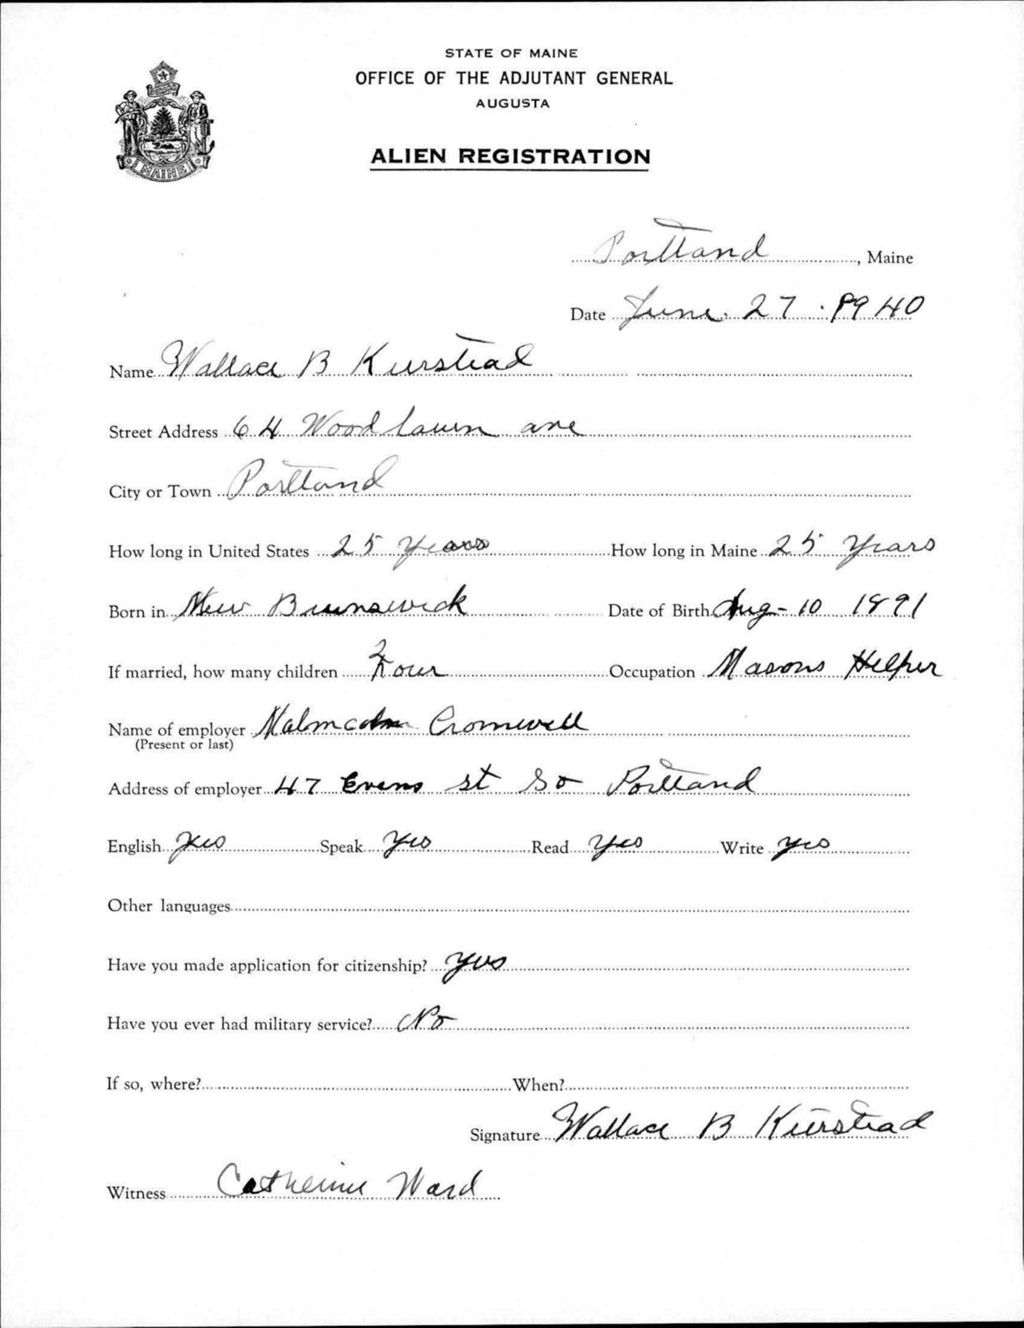 STATE OF MAINE
OFFICE OF THE ADJUTANT GENERAL
AUGUSTA
MAINE
ALIEN REGISTRATION
Portland, Maine
Date June. 27. 1940
Name Wallace B Kierstead
Street Address 64 Woodlawn ave
City or Town Portland
How long in United States 25 Years How long in Maine 25 Years
Born in New Brunswick Date of Birth Aug-10 1891
If married, how many children Four Occupation Masons Helper
Name of employer Malmcolm Cromwell
(Present or last)
Address of employer 47 Evens st So Portland
English Yes Speak Yes Read Yes Write Yes
Other languages
Have you made application for citizenship? Yes
Have you ever had military service? No
If so, where? When?
Signature Wallace B Kierstead
Witness Catherine Ward